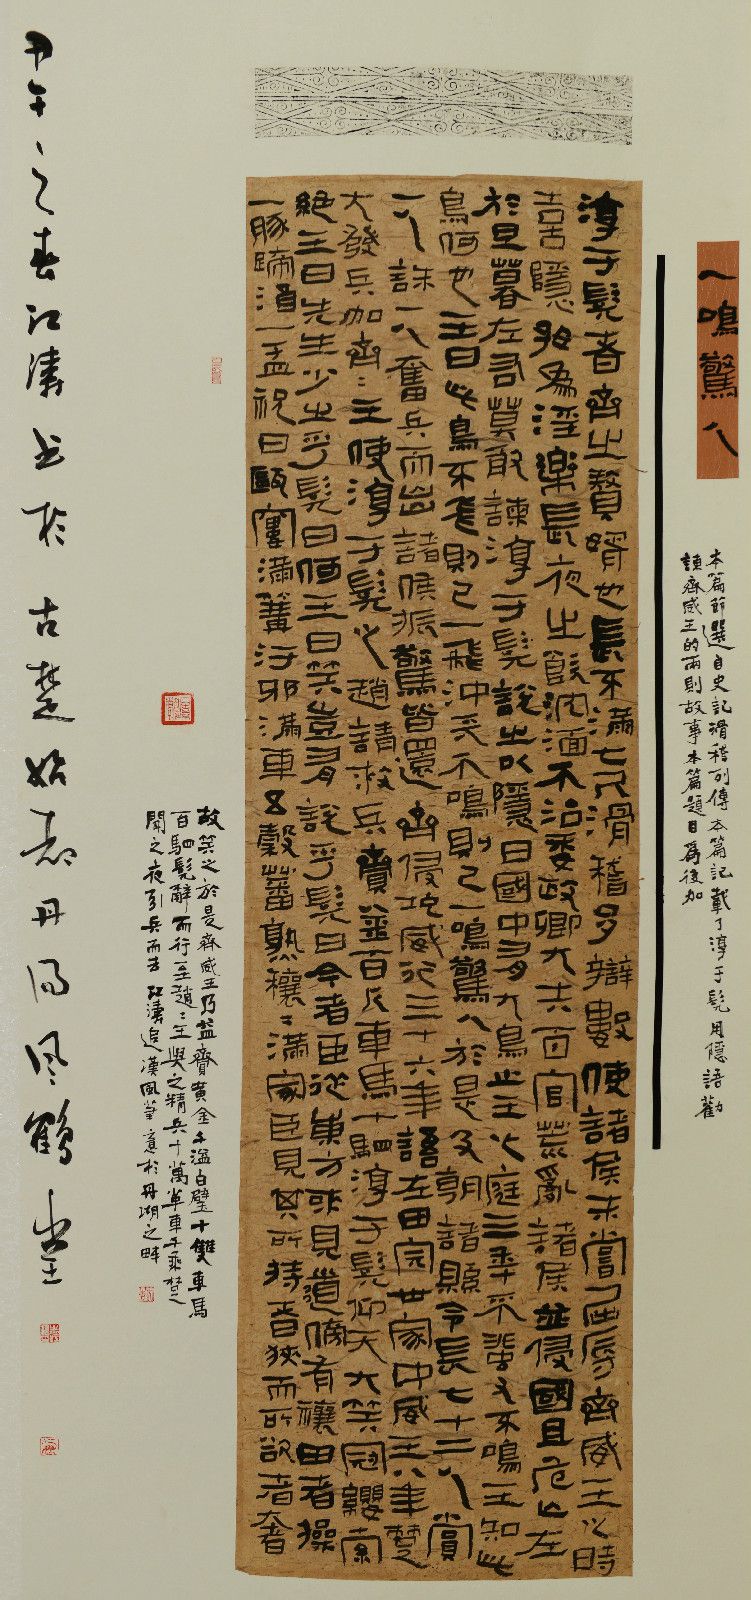 一鳴驚人
本篇節選自史記滑稽列傳本篇記載了淳于髡用隱語勸
諫齊威王的兩則故事本篇題目為後加
淳于髡者齊之贅婿也長不滿七尺滑稽多辯數使諸侯未嘗屈辱齊威王之時
喜隱好為淫樂長夜之飲沈湎不治委政卿大夫百官荒亂諸侯並侵國且危亡在
於旦暮左右莫敢諫淳于髡說之以隱曰國中有大鳥止王之庭三年不蜚又不鳴王知此
鳥何也王曰此鳥不飛則已一飛沖天不鳴則已一鳴驚人於是乃朝諸縣令長七十二人賞
一人誅一人奮兵而出諸侯振驚皆還齊侵地威行三十六年語在田完世家中威王八年楚
大發兵加齊〻王使淳于髡之趙請救兵齎金百斤車馬十駟淳于髡仰天大笑冠纓索
絕王曰先生少之乎髡曰何王曰笑豈有說乎髡曰今者臣從東方來見道傍有禳田者操
一豚蹄酒一盂祝曰甌窶滿篝汙邪滿車五穀蕃熟穰〻滿家臣見其所持者狹而所欲者奢
故笑之於是齊威王乃益齎黃金千溢白璧十雙車馬
百駟髡辭而行至趙〻王與之精兵十萬革車千乘楚
聞之夜引兵而去 江濤追漢風筆意於丹湖之畔
甲午之春江濤書於古楚始都丹陽風鶴堂